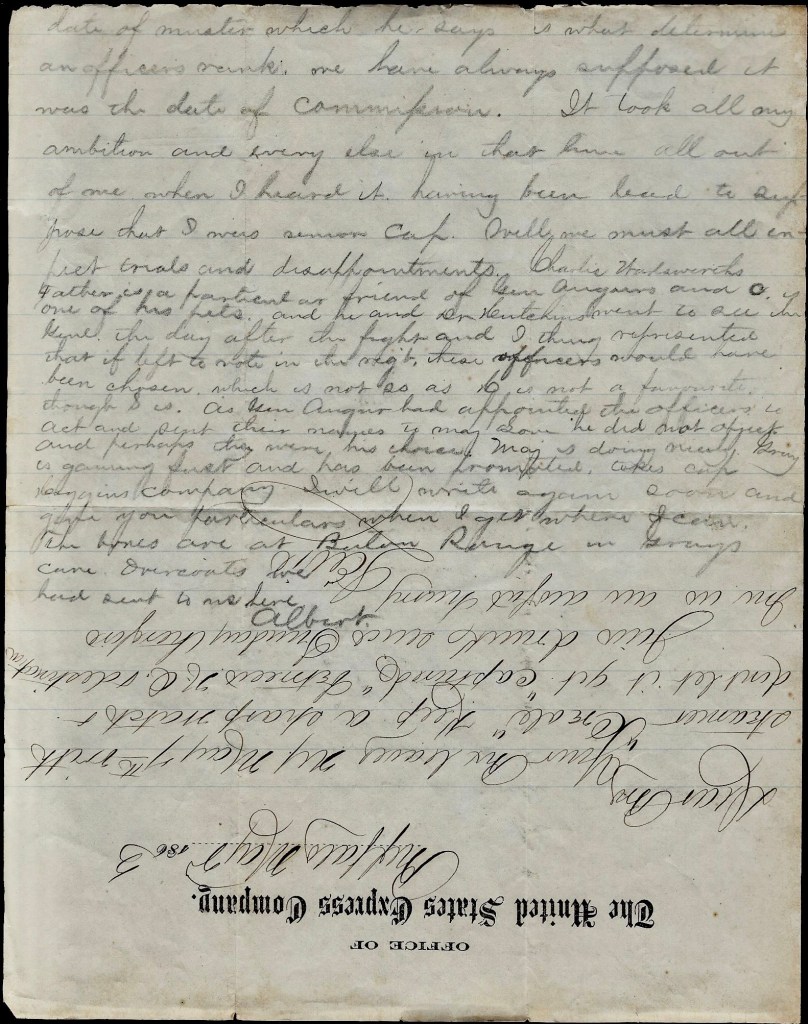 date of muster which he says is what determine
an officers rank. we have always supposed it
was the date of commission. It took all my
ambition and every else in that line all out
of me when I heard it. having been lead to sup
pose that I was senior Cap. Well, we must all ex-
pect trials and disappointments. Charlie Wadsworths
Father is a particular friend of Gen Augurs and C. is
one of his pets. and he and Dr Hutchins went to see the
Genl. the day after the fight and I think represented
that if left to vote in the regt, these officers would have
been chosen. which is not so as C is not a favourite.
though S is. As Gen Augur had appointed the officers to
act and sent their names to may above he did not object
and perhaps they were his choice. Maj is doing nicely. Gray
is gaining fast and has been promoted. takes cap
company I will write again soon and
give you particulars when I get where I can.
The boxes are at Baton Rouge in Grays
care. Overcoats we
had sent to us here
Albert.
OFFICE OF
The United States Express Company.
Buffalo May 5 1863
Dear Bro
Your Box leaves NY May 7th with
steamer "Locale" Keep a sharp watch &
dont let it get captured,
drunk since Tuesday therefore
Im in an awful hurry